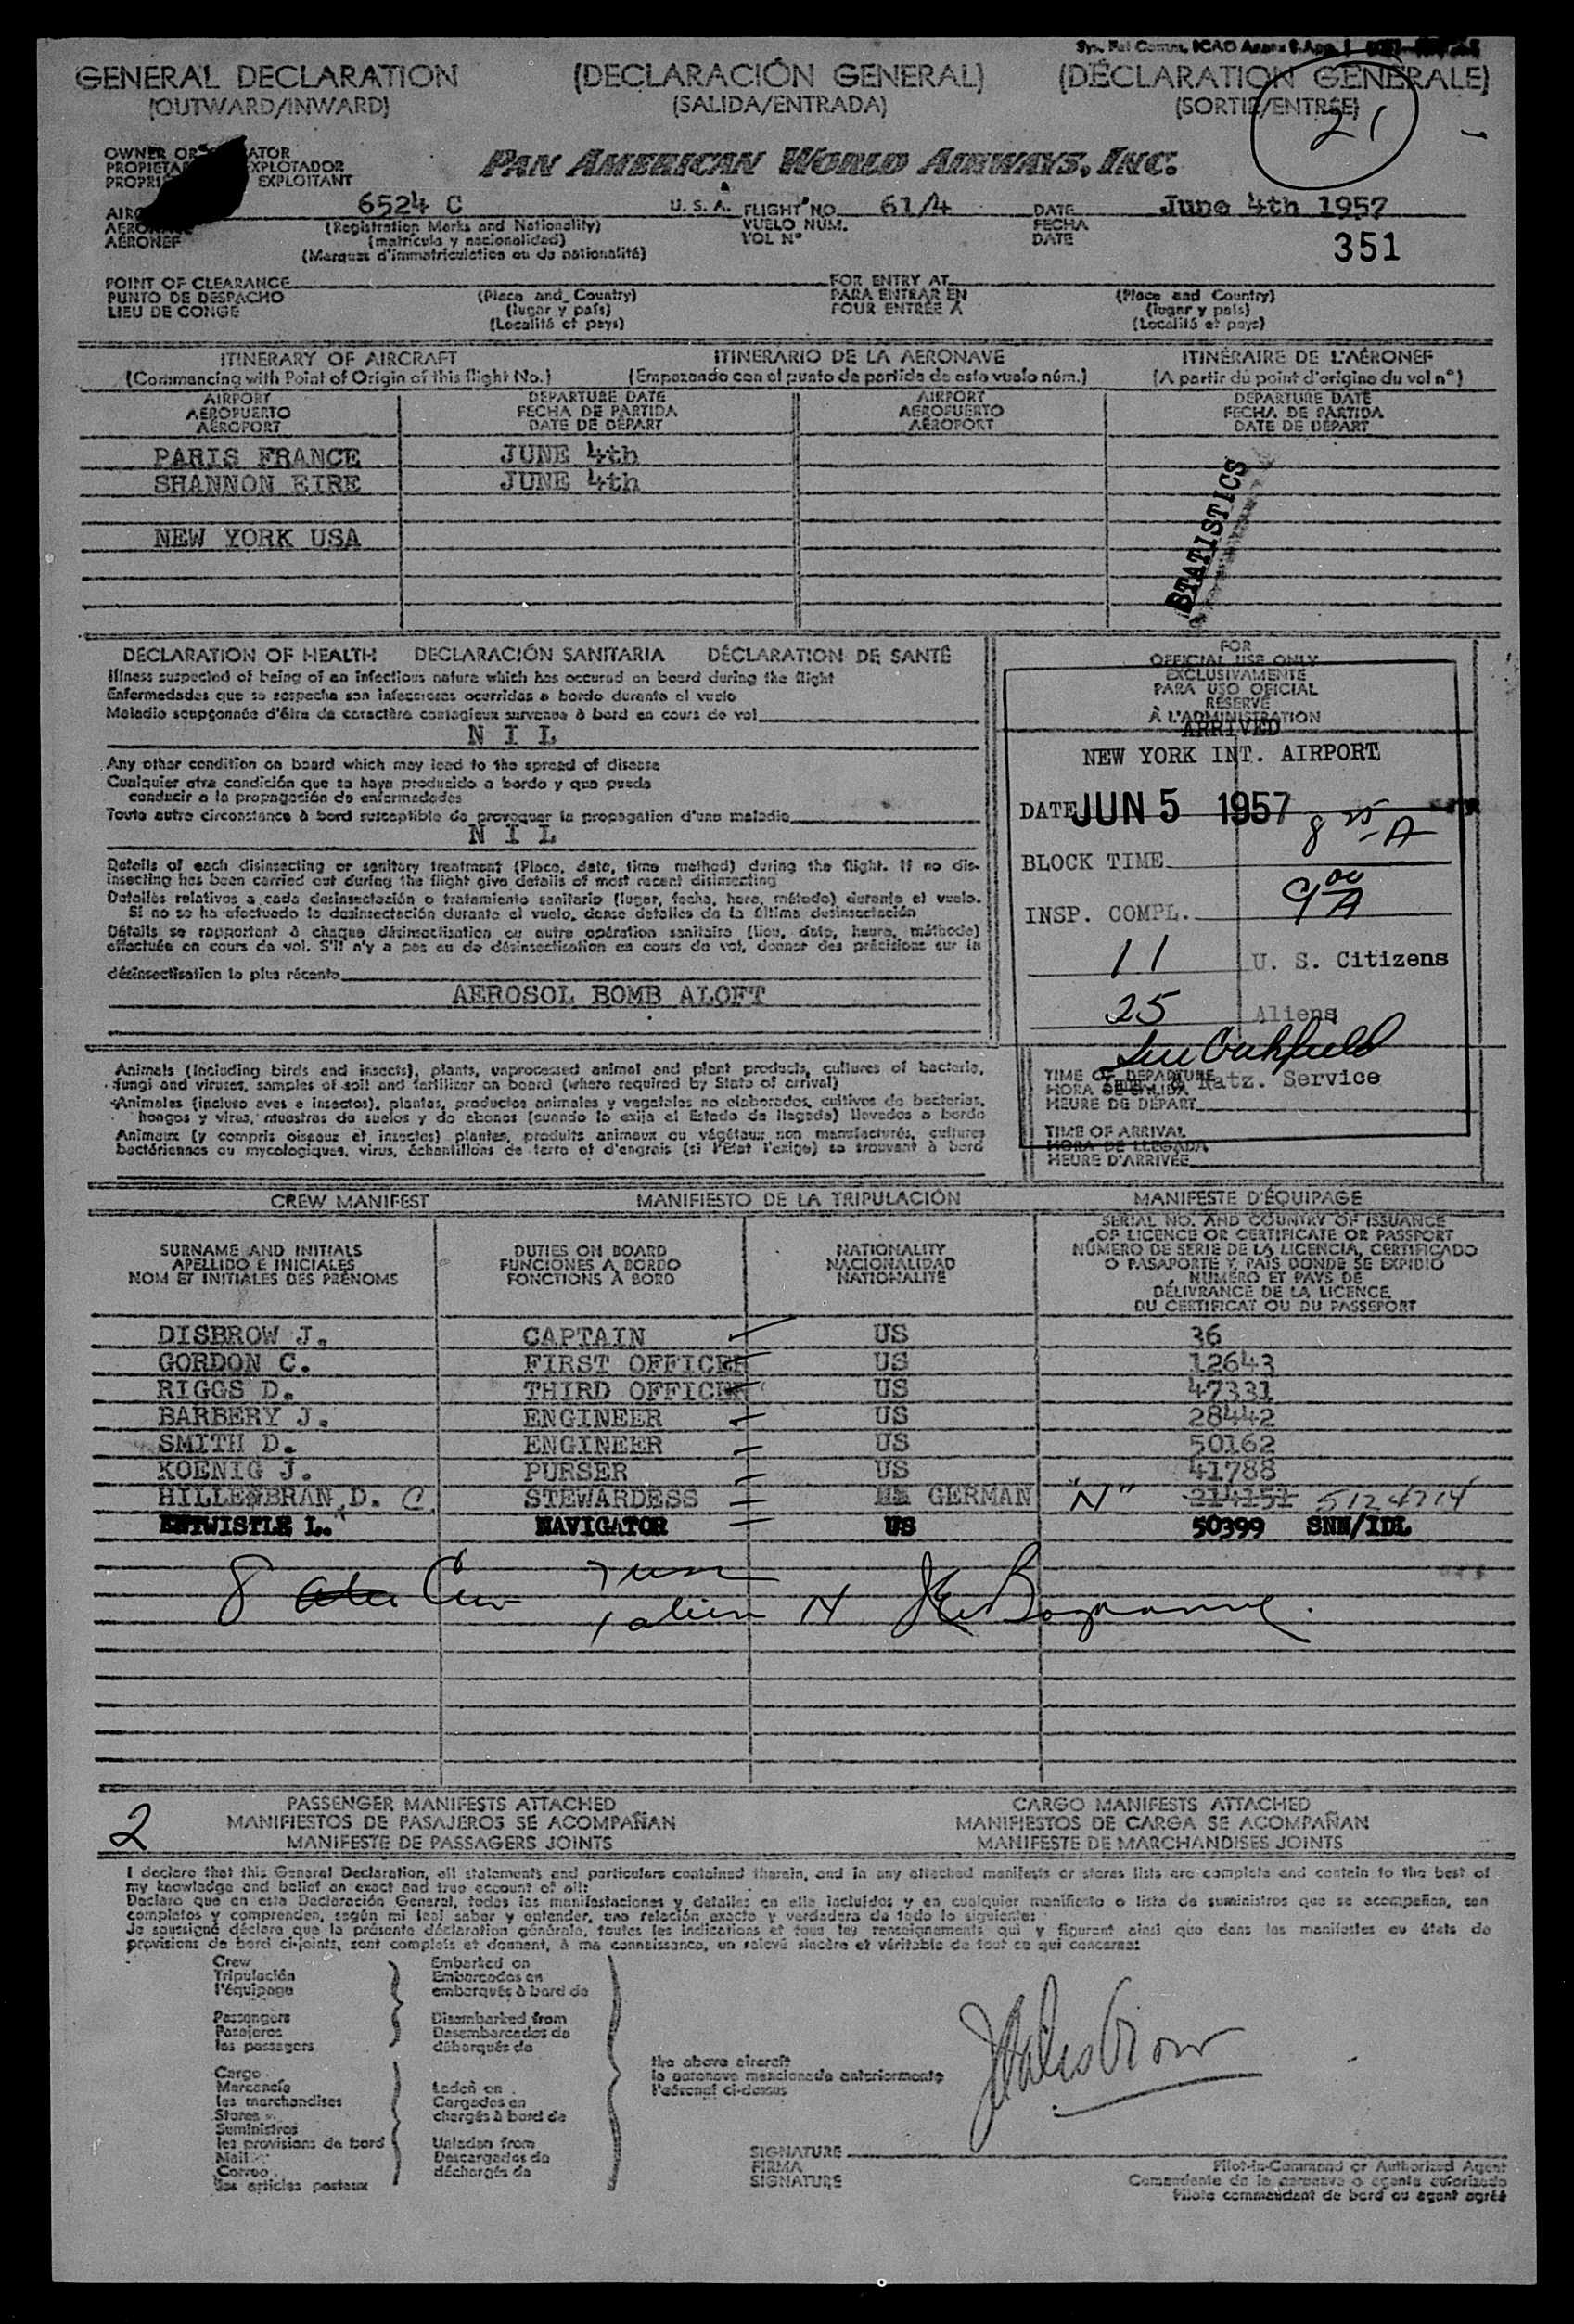 GENERAL DECLARATION (DECLARACIÓN GENERAL) (DÉCLARATION GÉNÉRALE)
(OUTWARD/INWARD) (SALIDA/ENTRADA) (SORTIE/ENTRÉE)
21
OWNER OR ATOR
PROPIETA XPLOTADOR
PROPRI EXPLOITANT
PAN AMERICAN WORLD AIRWAYS, INC.
AIRC 6524 C U. S. A. FLIGHT NO. 61/4 DATE June 4th 1957
AERON (Registration Marks and Nationality) VUELO NUM. FECHA
AÉRONEF (matrícula y nacionalidad) VOL N° DATE 351
(Marques d'immatriculation ou de nationalité)
POINT OF CLEARANCE FOR ENTRY AT
PUNTO DE DESPACHO (Place and Country) PARA ENTRAR EN (Place and Country)
LIEU DE CONGE (lugar y país) POUR ENTRÉE A (lugar y país)
(Localité et pays) (Localité et pays)
ITINERARY OF AIRCRAFT ITINERARIO DE LA AERONAVE ITINÉRAIRE DE L'AÉRONEF
(Commencing with Point of Origin of this flight No.) (Empezando con el punto de partida de este vuelo núm.) (A partir du point d'origine du vol n°)
AIRPORT DEPARTURE DATE AIRPORT DEPARTURE DATE
AEROPUERTO FECHA DE PARTIDA AEROPUERTO FECHA DE PARTIDA
AÉROPORT DATE DE DÉPART AÉROPORT DATE DE DÉPART
PARIS FRANCE JUNE 4th
SHANNON EIRE JUNE 4th
NEW YORK USA
STATISTICS
DECLARATION OF HEALTH DECLARACIÓN SANITARIA DÉCLARATION DE SANTÉ
Illness suspected of being of an infectious nature which has occured on board during the flight
Enfermedades que se sospecha son infecciosas ocurridas a bordo durante el vuelo
Maladie soupçonnée d'être de caractère contagieux survenue à bord en cours de vol
N I L
Any other condition on board which may lead to the spread of disease
Cualquier otra condición que se haya producido a bordo y que pueda
conducir a la propagación de enfermedades
Toute autre circonstance à bord susceptible de provoquer la propagation d'une maladie
N I L
Details of each disinsecting or sanitary treatment (Place, date, time method) during the flight. If no dis-
insecting has been carried out during the flight give details of most recent disinsecting
Detalles relativos a cada desinsectación o tratamiento sanitario (lugar, fecha, hora, método) durante el vuelo.
Si no se ha efectuado la desinsectación durante el vuelo, dense detalles de la última desinsectación
Détails se rapportant à chaque désinsectisation ou autre opération sanitaire (lieu, date, heure, méthode)
effectuée en cours de vol. S'il n'y a pas eu de désinsectisation en cours de vol, donner des précisions sur la
désinsectisation la plus récente
AEROSOL BOMB ALOFT
FOR
OFFICIAL USE ONLY
EXCLUSIVAMENTE
PARA USO OFICIAL
RÉSERVÉ
À L'ADMINISTRATION
ARRIVED
NEW YORK INT. AIRPORT
DATE JUN 5 1957
BLOCK TIME 8 25 A
INSP. COMPL. 9 00 A
11 U. S. Citizens
25 Aliens
Natz. Service
TIME OF DEPARTURE
HORA DE SALIDA
HEURE DE DÉPART
TIME OF ARRIVAL
HORA DE LLEGADA
HEURE D'ARRIVÉE
Animals (including birds and insects), plants, unprocessed animal and plant products, cultures of bacteria,
fungi and viruses, samples of soil and fertilizer on board (where required by State of arrival)
Animales (incluso aves e insectos), plantas, productos animales y vegetales no elaborados, cultivos de bacterias,
hongos y virus, muestras de suelos y de abonos (cuando lo exija el Estado de llegada) llevados a bordo
Animaux (y compris oiseaux et insectes) plantes, produits animaux ou végétaux non manufacturés, cultures
bactériennes ou mycologiques, virus, échantillons de terre et d'engrais (si l'État l'exige) se trouvant à bord
CREW MANIFEST MANIFIESTO DE LA TRIPULACIÓN MANIFESTE D'ÉQUIPAGE
SURNAME AND INITIALS DUTIES ON BOARD NATIONALITY
APELLIDO E INICIALES FUNCIONES A BORDO NACIONALIDAD
NOM ET INITIALES DES PRÉNOMS FONCTIONS À BORD NATIONALITÉ
SERIAL NO. AND COUNTRY OF ISSUANCE
OF LICENCE OR CERTIFICATE OR PASSPORT
NÚMERO DE SERIE DE LA LICENCIA, CERTIFICADO
O PASAPORTE Y PAÍS DONDE SE EXPIDIÓ
NUMÉRO ET PAYS DE
DÉLIVRANCE DE LA LICENCE
DU CERTIFICAT OU DU PASSEPORT
DISBROW J. CAPTAIN US 36
GORDON C. FIRST OFFICER US 12643
RIGGS D. THIRD OFFICER US 47331
BARBERY J. ENGINEER US 28442
SMITH D. ENGINEER US 50162
KOENIG J. PURSER US 41788
HILLENBRAN D. C. STEWARDESS GERMAN "N" 214151 5124714
ENTWISTLE L. NAVIGATOR US 50399 SNN/IDL
8 Crew 7 USC
1 alien N
2
PASSENGER MANIFESTS ATTACHED CARGO MANIFESTS ATTACHED
MANIFIESTOS DE PASAJEROS SE ACOMPAÑAN MANIFIESTOS DE CARGA SE ACOMPAÑAN
MANIFESTE DE PASSAGERS JOINTS MANIFESTE DE MARCHANDISES JOINTS
I declare that this General Declaration, all statements and particulars contained therein, and in any attached manifests or stores lists are complete and contain to the best of
my knowledge and belief an exact and true account of all:
Declaro que en esta Declaración General, todas las manifestaciones y detalles en ella incluidos y en cualquier manifiesto o lista de suministros que se acompañan, son
completos y comprenden, según mi leal saber y entender, una relación exacta y verdadera de todo lo siguiente:
Je soussigné déclare que la présente déclaration générale, toutes les indications et tous les renseignements qui y figurent ainsi que dans les manifestes ou états de
provisions de bord ci-joints, sont complets et donnent, à ma connaissance, un relevé sincère et véritable de tout ce qui concerne:
Crew Embarked on
Tripulación Embarcados en
l'équipage embarqués à bord de
Passengers Disembarked from
Pasajeros Desembarcados de
les passagers débarqués de
the above aircraft
la aeronave mencionada anteriormente
l'aéronef ci-dessus
Cargo
Mercancía Laden on
les marchandises Cargados en
Stores chargés à bord de
Suministros
les provisions de bord Unladen from
Mail Descargados de
Correo déchargés de
les articles postaux
SIGNATURE
FIRMA
SIGNATURE
Pilot-in-Command or Authorized Agent
Comandante de la aeronave o agente autorizado
Pilote commandant de bord ou agent agréé